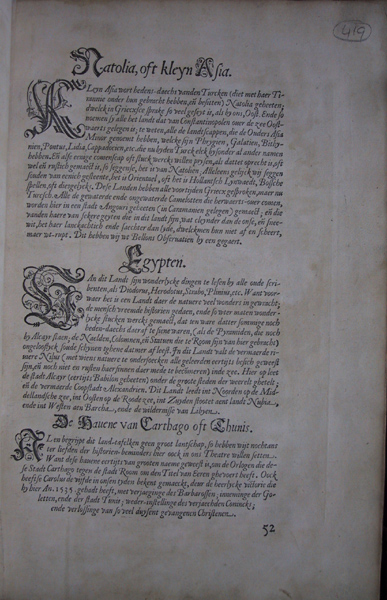 419
Natolia, oft kleyn Asia.
KLeyn Asia wort hedens-daechs vanden Turcken (diet met haer Ti-
rannie onder hun gebrocht hebben, en besitten) Natolia geheeten;
dwelck in Griecxsce sproke so veel geseyt is, als by ons, Oost. Ende so
noemen sy alle het landt dat van Constantinopelen over de zee Oost-
waerts gelegen is; te weten, alle de landtscappen, die de Ouders Asia
Minor genoemt hebben, welcke syn Phrygien, Galatien, Bithy-
nien, Pontus, Lidia, Cappadocien, etc. die nu
hebben. En
wel en
Dese Landen hebben alle voortyden Griecx gesproken, maer nu
Turcsch. Alle de
worden hier in een stadt Angouri geheeten (in Caramanien gelegen) gemaect, en die
vanden haere van sekere geyten die in dit landt syn, wat cleynder dan de onse,
wit, het haer lanckachtich ende saechter dan syde, dwelck men hun niet af en scheert,
maer wt-rupt. Dit hebben wy wt Bellons Observatien by een gegaert.
Egypten.
VAn dit Landt syn wonderlycke dingen te lesen by alle oude scri-
benten, als Diodorus, Herodotus, Strabo, Plinius, etc. Want voor-
waer het is een Landt daer de natuere veel wonders in gewracht,
de mensch vreemde historien gedaen, ende so voor maten wonder-
lycke stucken wercks gemaect, dat ten ware datter sommige noch
heden-daechs daer af te siene waren, (als de Pyramiden, die noch
by Alcayr staen; de Naelden, Colomnen, en Statuen die te Room syn van hier gebrocht)
ongelooflyck soude schynen tghene datmer af leest. In dit Landt valt de vermaerde ri-
viere Nilus (met wiens natuere te ondersoecken alle geleerden eertyts besich geweest
syn, en noch niet en rusten haer sinnen daer mede te becommeren) inde zee. Hier op leet
de stadt Alcayr (eertyts Babilon geheeten) onder de grootse steden der weerelt gheteelt;
en de vermaerde Coopstadt Alexandrien. Dit Landt leedt int Noorden op de Middel-
landtsche zee, int Oosten op de Roode zee, int Zuyden stootet aent landt Nubia,
ende int Westen aen Barcha, ende de wildernisse van Libyen.
De Havene van Carthago oft Thunis.
ALen begrypt dit land-tafelken geen groot lantschap, so hebben wyt nochtans
ter liefden der historien-beminders hier oock in ons Theatre willen setten.
Want dese havene eertyts van grooten naeme geweest is, om de Orlogen die de-
se Stadt Carthago tegen de stadt Room om den Titel van Eeren ghevoert heeft. Oock
heeftse Carolus de vijfde in onsen tyden bekent gemaeckt, deur de heerlycke victorie die
hy hier An. 1535. gehadt heeft, met verjaeginge des Barbarossen; inneminge der Go-
letten, ende der stadt Tunis; weder-instellinge des verjaechden Conincks;
ende verlossinge van so veel duysent gevangenen Christenen.
52